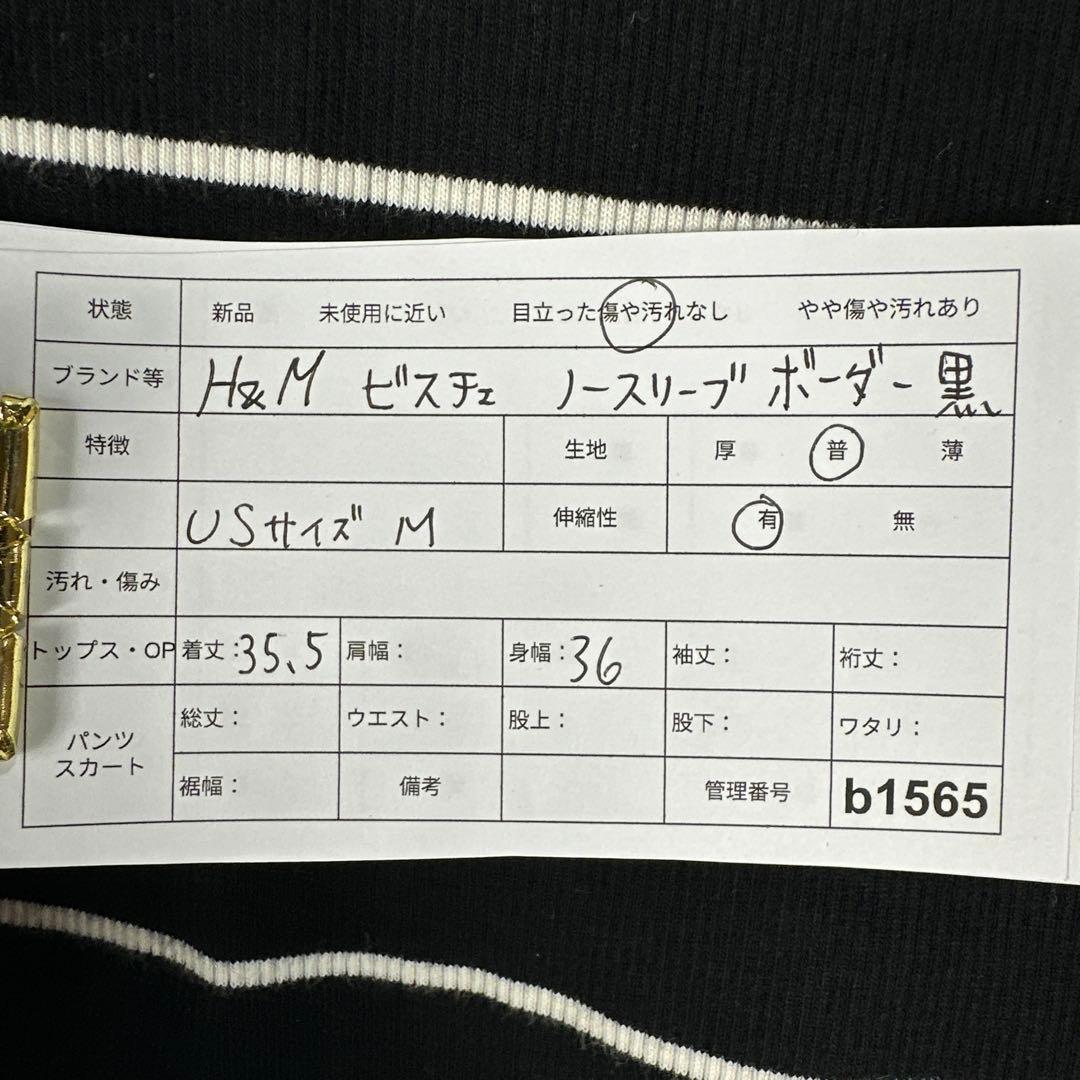 状態 新品 未使用に近い 目立った傷や汚れなし やや傷や汚れあり
ブランド等 H&M ビスチェ ノースリーブ ボーダー 黒
特徴 生地 厚 普 薄
USサイズ M 伸縮性 有 無
汚れ・傷み
トップス・OP 着丈：35.5 肩幅： 身幅：36 袖丈： 裄丈：
パンツ スカート 総丈： ウエスト： 股上： 股下： ワタリ：
裾幅： 備考 管理番号 b1565